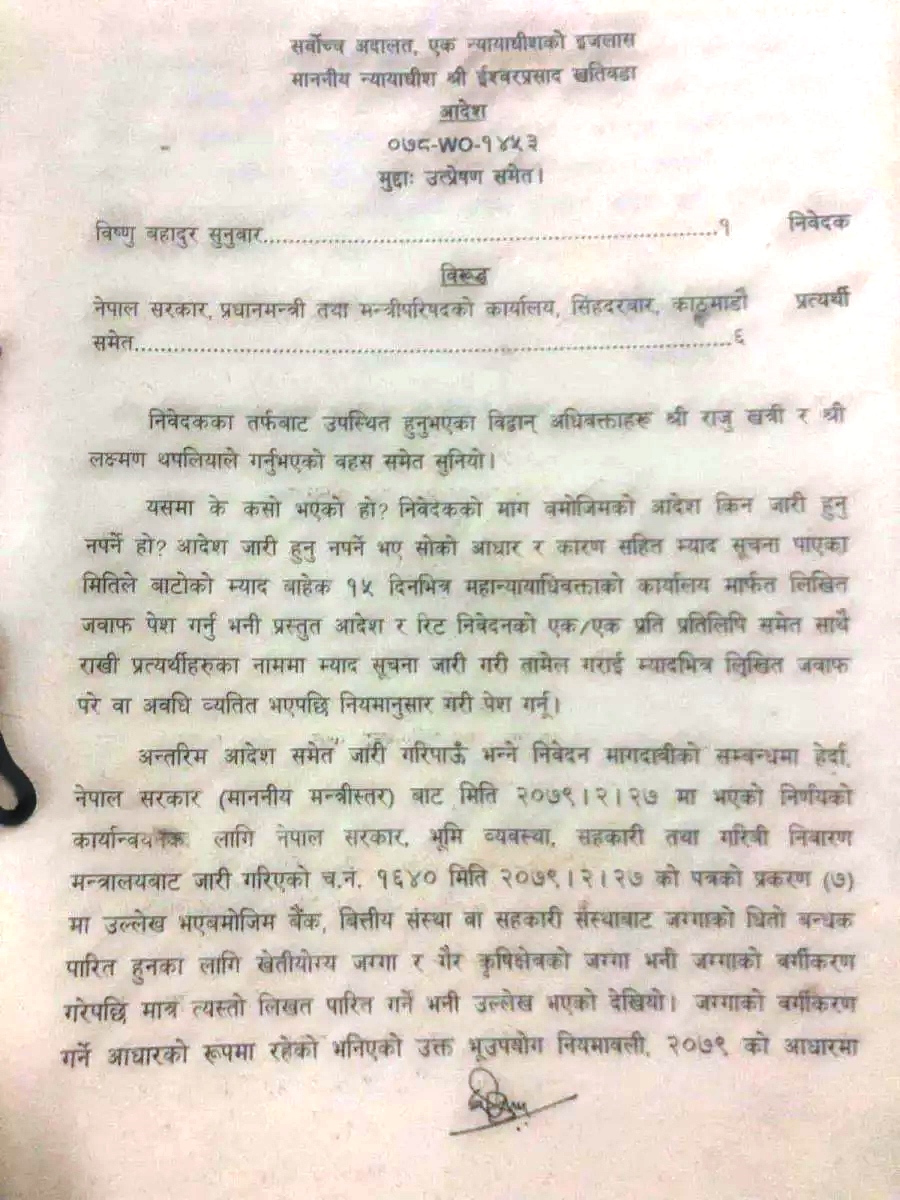 सर्वोच्च अदालत, एक न्यायाधीशको इजलास
माननीय न्यायाधीश श्री ईश्वरप्रसाद खतिवडा
आदेश
०७८-WO-१४५३
मुद्दाः उत्प्रेषण समेत।
विष्णु बहादुर सुनुवार..........................................................................१ निवेदक
विरूद्ध
नेपाल सरकार, प्रधानमन्त्री तथा मन्त्रीपरिषदको कार्यालय, सिंहदरबार, काठमाडौ प्रत्यर्थी
समेत..........................................................................................६
निवेदकका तर्फबाट उपस्थित हुनुभएका विद्वान् अधिवक्ताहरू श्री राजु खत्री र श्री
लक्ष्मण थपलियाले गर्नुभएको वहस समेत सुनियो।
यसमा के कसो भएको हो? निवेदकको माग बमोजिमको आदेश किन जारी हुनु
नपर्ने हो? आदेश जारी हुनु नपर्ने भए सोको आधार र कारण सहित म्याद सूचना पाएका
मितिले बाटोको म्याद बाहेक १५ दिनभित्र महान्यायाधिवक्ताको कार्यालय मार्फत लिखित
जवाफ पेश गर्नु भनी प्रस्तुत आदेश र रिट निवेदनको एक/एक प्रति प्रतिलिपि समेत साथै
राखी प्रत्यर्थीहरुका नाममा म्याद सूचना जारी गरी तामेल गराई म्यादभित्र लिखित जवाफ
परे वा अवधि व्यतित भएपछि नियमानुसार गरी पेश गर्नू।
अन्तरिम आदेश समेत जारी गरिपाऊँ भन्ने निवेदन मागदावीको सम्बन्धमा हेर्दा,
नेपाल सरकार (माननीय मन्त्रीस्तर) बाट मिति २०७९।२।२७ मा भएको निर्णयको
कार्यान्वयनका लागि नेपाल सरकार, भूमि व्यवस्था, सहकारी तथा गरिबी निवारण
मन्त्रालयबाट जारी गरिएको च.नं. १६४० मिति २०७९।२।२७ को पत्रको प्रकरण (७)
मा उल्लेख भएबमोजिम बैंक, बित्तीय संस्था वा सहकारी संस्थाबाट जग्गाको धितो बन्धक
पारित हुनका लागि खेतीयोग्य जग्गा र गैर कृषिक्षेत्रको जग्गा भनी जग्गाको बर्गीकरण
गरेपछि मात्र त्यस्तो लिखत पारित गर्ने भनी उल्लेख भएको देखियो। जग्गाको बर्गीकरण
गर्ने आधारको रूपमा रहेको भनिएको उक्त भूउपयोग नियमावली, २०७९ को आधारमा